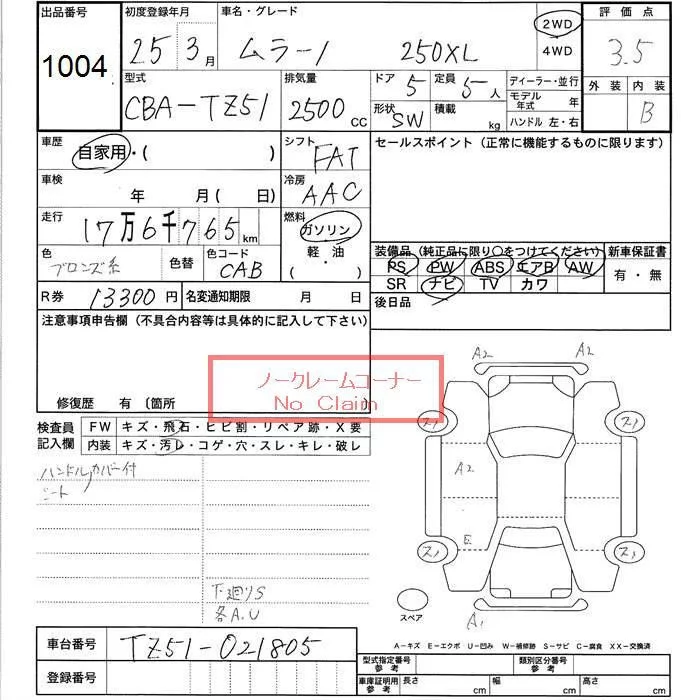 出品番号 初度登録年月 車名・グレード 2WD 評価点
1004 25 3月 ムラーノ 250XL 4WD 3.5
型式 排気量 ドア 5 定員 5人 ディーラー・並行 外装 内装
CBA-TZ51 2500cc 形状 SW 積載 kg モデル年式 年 B
ハンドル 左・右
車歴 自家用・( ) シフト FAT セールスポイント(正常に機能するものに限ります)
車検 年 月( 日) 冷房 AAC
走行 17万6千765km 燃料 ガソリン
軽・油
・( )
色 ブロンズ系 色替 色コード CAB
装備品(純正品に限り〇をつけてください) 新車保証書
PS PW ABS エアB AW 有・無
SR ナビ TV カワ
R券 13300円 名変通知期限 月 日 後日品
注意事項申告欄(不具合内容等は具体的に記入して下さい)
ノークレームコーナー
No Claim
修復歴 有〔箇所
検査員記入欄 FW キズ・飛石・ヒビ割・リペア跡・X要
内装 キズ・汚レ・コゲ・穴・スレ・キレ・破レ
ハンドルカバー付
シート
下廻りS
各A.U
A2 A2
スリ スリ
A2
E
スリ スリ
スペア A1
A-キズ E-エクボ U-凹み W-補修跡 S-サビ C-腐食 XX-交換済
車台番号 TZ51-021805
登録番号
型式指定番号 参考 類別区分番号 参考
車庫証明用 参考 長さ cm 幅 cm 高さ cm